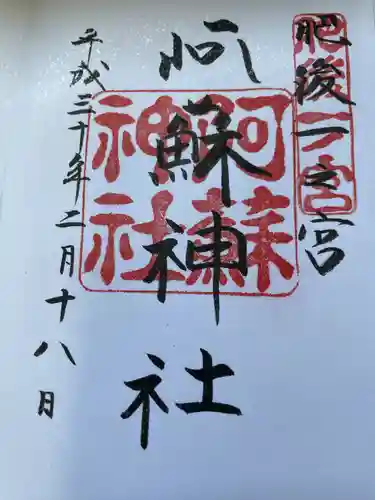 肥後一之宮
阿蘇神社
平成三十年二月十八日
肥後一宮
阿蘇
神社